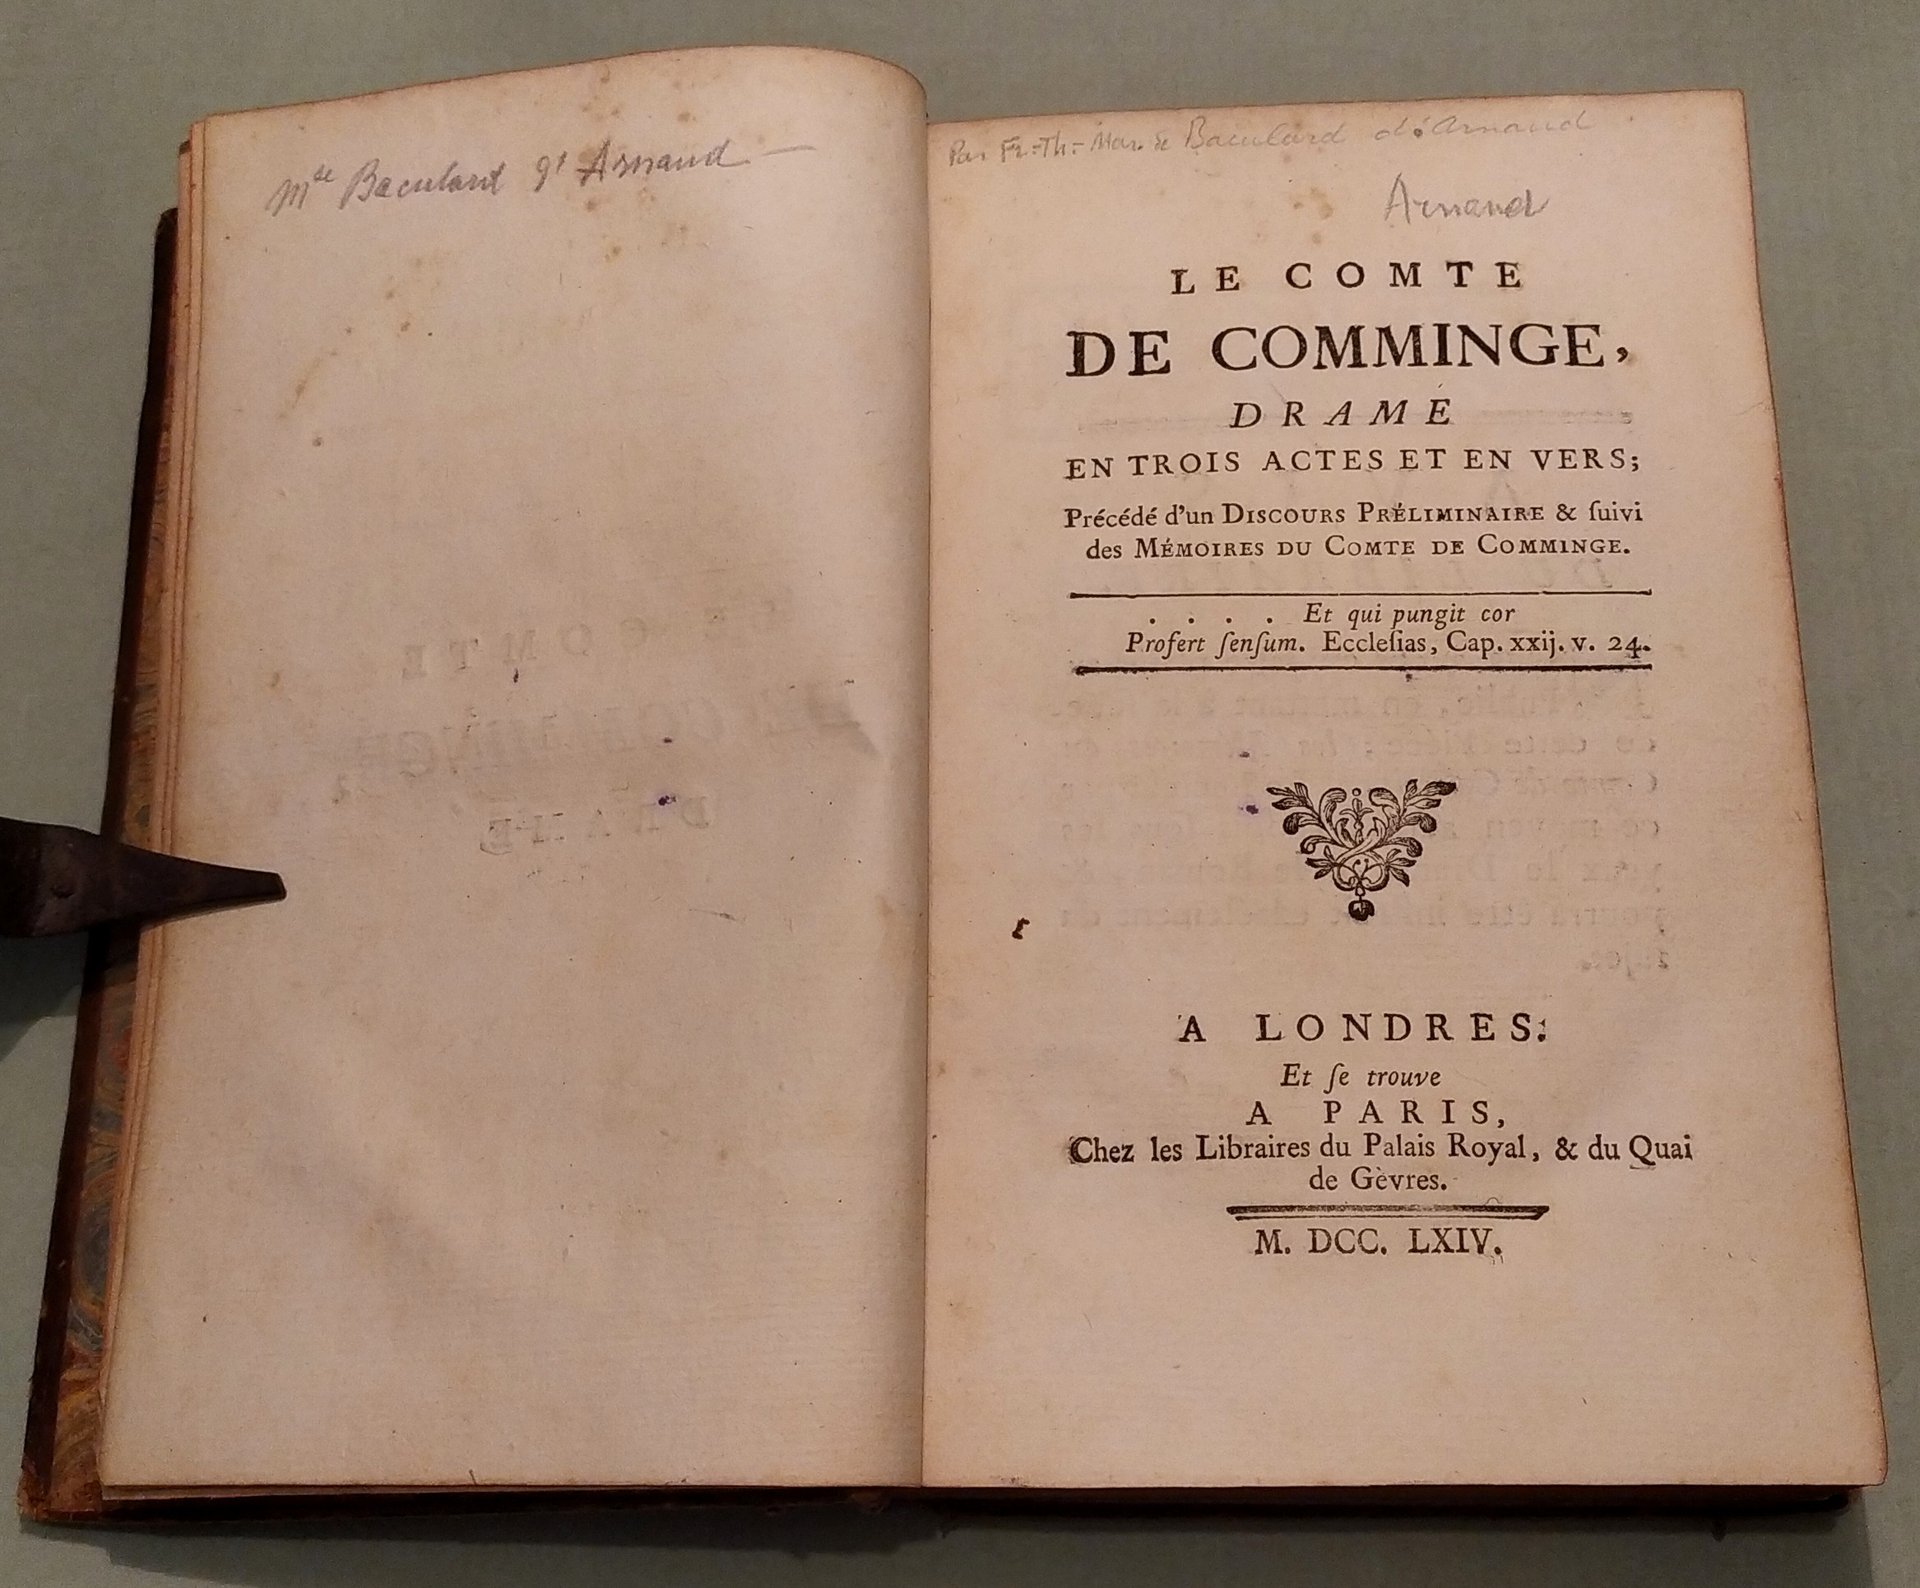 Mde Baculard d'Arnaud
Par Fr.-Th.- Mar. de Baculard d'Arnaud
Arnaud
LE COMTE
DE COMMINGE,
DRAME
EN TROIS ACTES ET EN VERS;
Précédé d'un DISCOURS PRÉLIMINAIRE & ſuivi
des MÉMOIRES DU COMTE DE COMMINGE.
. . . . Et qui pungit cor
Profert ſenſum. Eccleſias, Cap. xxij. v. 24.
A LONDRES:
Et ſe trouve
A PARIS,
Chez les Libraires du Palais Royal, & du Quai
de Gèvres.
M. DCC. LXIV.